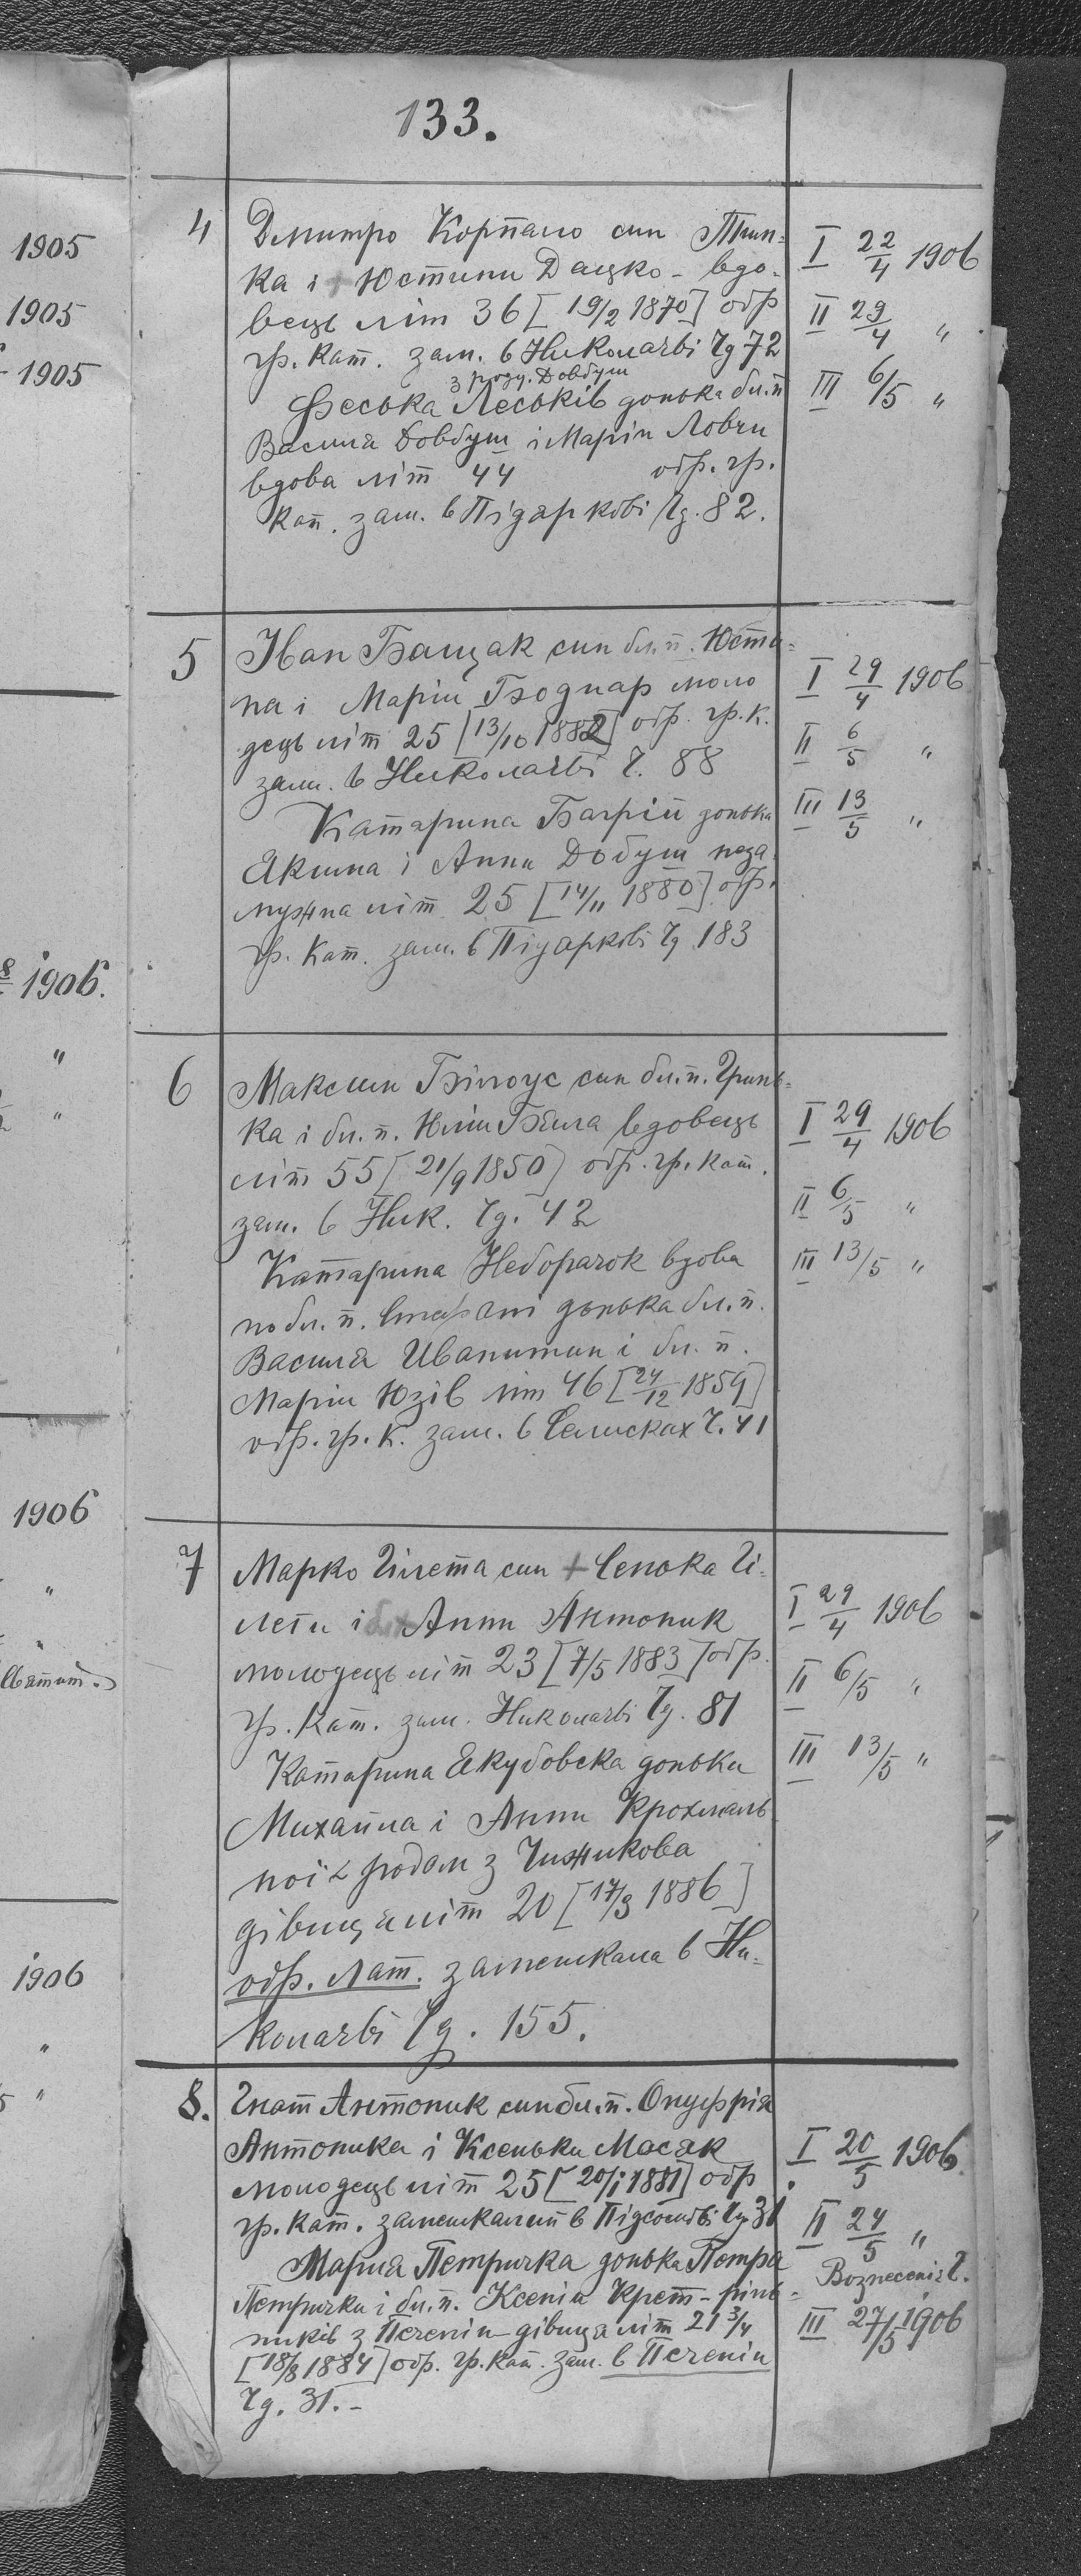 133.
1905
1905
1905
1906.
"
"
1906
"
"
1906
"
"
4
Дмитро Корпало син Тим-
ка і + Юстини Дацко - вдо-
вець літ 36 [19/2 1870] обр
гр. кат. зам. в Николаєві Чд 72
з роду Довбуш
Феська Леськів донька бл. п
Василя Довбуш і Марії Ловчи
вдова літ 44 обр. гр.
кат. зам. в Підяркові Чд. 82.
I 22/4 1906
II 29/4 "
III 6/5 "
5
Иван Бащак син бл. п. Юсти-
на і Марії Боднар моло
дець літ 25 [13/10 1882] обр. гр. к.
зам. в Николаєві Ч. 88
Катарина Багрій донька
Якима і Анни Добуш неза
мужна літ 25 [14/11 1880] обр.
гр. кат. зам. в Підяркові Чд 183
I 29/4 1906
II 6/5 "
III 13/5 "
6
Максим Білоус син бл. п. Гринь-
ка і бл. п. Юлії Біла вдовець
літ 55 [21/9 1850] обр. гр. кат.
зам. в Ник. Чд. 42
Катарина Неборачок вдова
по бл. п. Стефані донька бл. п.
Василя Иванишин і бл. п.
Марії Юзів літ 46 [24/12 1859]
обр. гр. к. зам. в Селисках Ч. 41
I 29/4 1906
II 6/5 "
III 13/5 "
7
Марко Гілета син + Сенька Гі-
лети і Анни Антоник
молодець літ 23 [7/5 1883] обр.
гр. кат. зам. Николаєві Чд. 81
Катарина Якубовска донька
Михайла і Анни Крохмаль
ної родом з Чижикова
дівиця літ 20 [17/3 1886]
обр. лат. замешкала в Ни-
колаєві Чд. 155.
I 29/4 1906
II 6/5 "
III 13/5 "
8.
Гнат Антоник син бл. п. Онуфрія
Антоника і Ксеньки Масяк
молодець літ 25 [20/1 1881] обр
гр. кат. замешкалий в Підсоснові Чд 31
Мария Петричка донька Петра
Петрички і бл. п. Ксенії Крет - рінь-
ників з Печенії дівиця літ 21 3/4
[18/8 1884] обр. гр. кат. зам. в Печенії
Чд. 31. -
I 20/5 1906
II 24/5 "
Вознесеніє Г.
III 27/5 1906